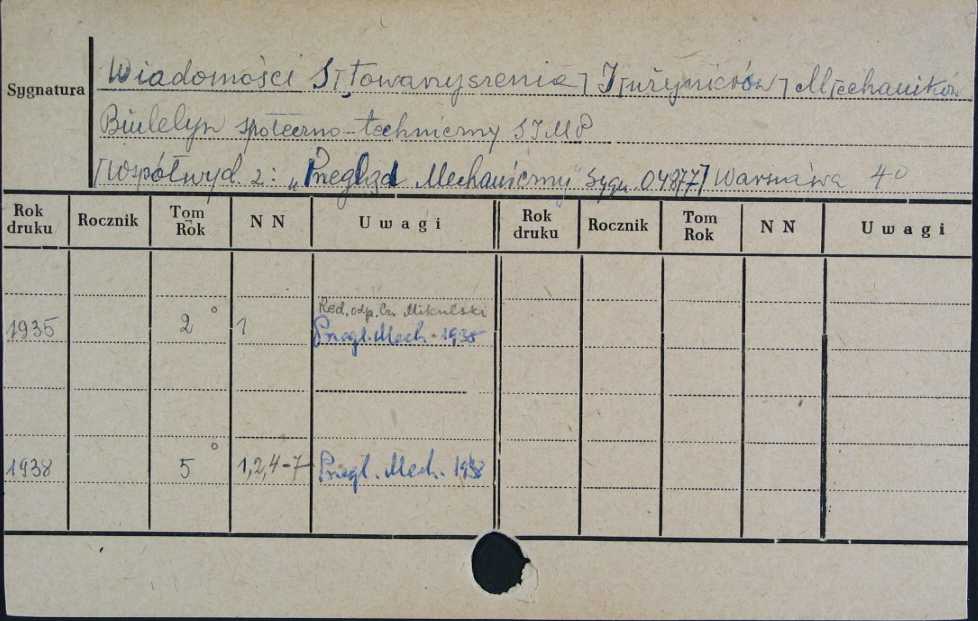 Sygnatura
Wiadomości S[towarzyszenia] I[nżynierów] M[echaników
Biuletyn społeczno-techniczny SIMP
[Współwyd z: "Przegląd Mechaniczny" Sygn 04877] Warszawa 4°
Rok druku Rocznik Tom Rok N N U w a g i Rok druku Rocznik Tom Rok N N U w a g i
Red. odp. Cz. Mikulski
1935 2° 1 Przegl. Mech. 1935
1938 5° 1,2,4-7 Przegl. Mech. 1938